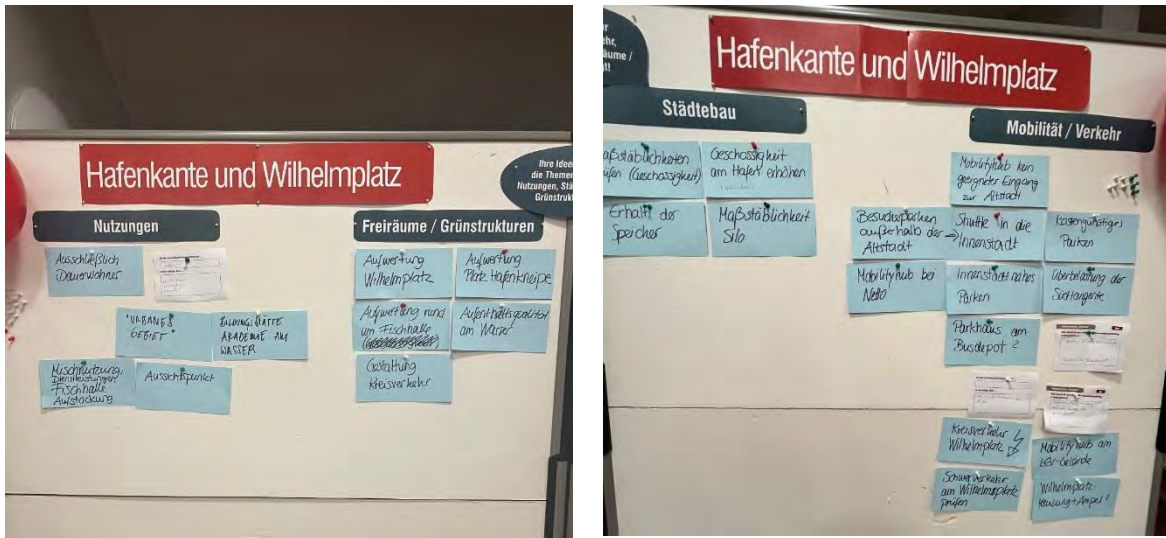 Hafenkante und Wilhelmplatz
Ihre Ideen
die Themen
Nutzungen, Stä
Grünstruk
Nutzungen
Ausschließlich
Dauerwohner
"URBANES
GEBIET"
BILDUNGSSTÄTTE
AKADEMIE AM
WASSER
Mischnutzung,
Dienstleistungen
Fischhalle
Aufstockung
Aussichtspunkt
Freiräume / Grünstrukturen
Aufwertung
Wilhelmplatz
Aufwertung
Platz Hafenkneipe
Aufwertung rund
um Fischhalle
Aufenthaltsqualität
am Wasser
Gestaltung
Kreisverkehr
Hafenkante und Wilhelmplatz
ehr,
äume /
Städtebau
aßstäblichkeiten
üfen (Geschossigkeit)
Geschossigkeit
am Hafen erhöhen
Erhalt der
Speicher
Maßstäblichkeit
Silo
Mobilität / Verkehr
Mobilityhub kein
geeigneter Eingang
zur Altstadt
Besucherparken
außerhalb der
Altstadt
Shuttle in die
Innenstadt
Kostengünstiges
Parken
Mobilityhub bei
Netto
Innenstadtnahes
Parken
Überbelastung der
Südtangente
Parkhaus am
Busdepot?
Kreisverkehr
Wilhelmplatz
Mobilityhub am
Gelände
Schwerverkehr
am Wilhelmsplatz
prüfen
Wilhelmplatz
Kreuzung + Ampel?